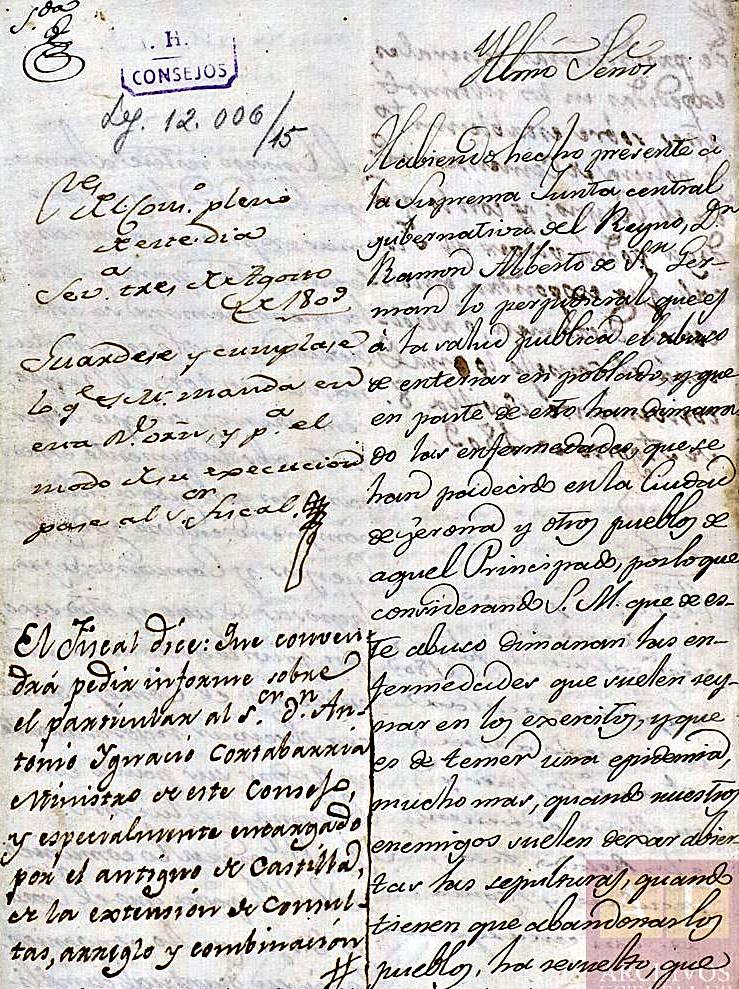 S.da
A. H.
CONSEJOS
Leg. 12.006/15
del Con.o pleno
de este dia
Sev.a tres de Agosto
de 1809
Guardese y cumplase
lo q.e S.M. manda en
esta R.l orn, y p.a el
modo de su execucion
pase al S.or Fiscal.
El Fiscal dice: Que conven-
drá pedir informe sobre
el particular al S.or D.n An-
tonio Ygnacio Cortabarria
Ministro de este Consejo,
y especialmente encargado
por el antiguo de Castilla,
de la extensión de Consul-
tas, arreglo y combinación
Yltmo Señor
Habiendo hecho presente á
la Suprema Junta central
gubernativa del Reyno, D.n
Ramon Alberto de S.n Ger-
man lo perjudicial que es
à la salud publica el abuso
de enterrar en poblado, y que
en parte de esto han dimana-
do las enfermedades, que se
han padecido en la Ciudad
de Gerona y otros pueblos de
aquel Principado, por lo que
considerando S. M. que de es-
te abuso dimanan las en-
fermedades que suelen rey-
nar en los exercitos, y que
es de temer una epidemia,
mucho mas, quando nuestros
enemigos suelen dexar abier-
tas las sepulturas, quando
tienen que abandonar los
pueblos, ha resuelto, que
ARCHIVOS